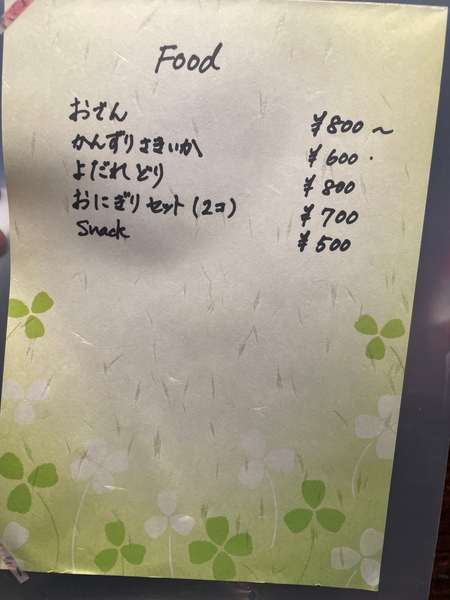 Food
おでん ¥800～
かんずりさきいか ¥600.
よだれどり ¥800
おにぎりセット(2コ) ¥700
Snack ¥500